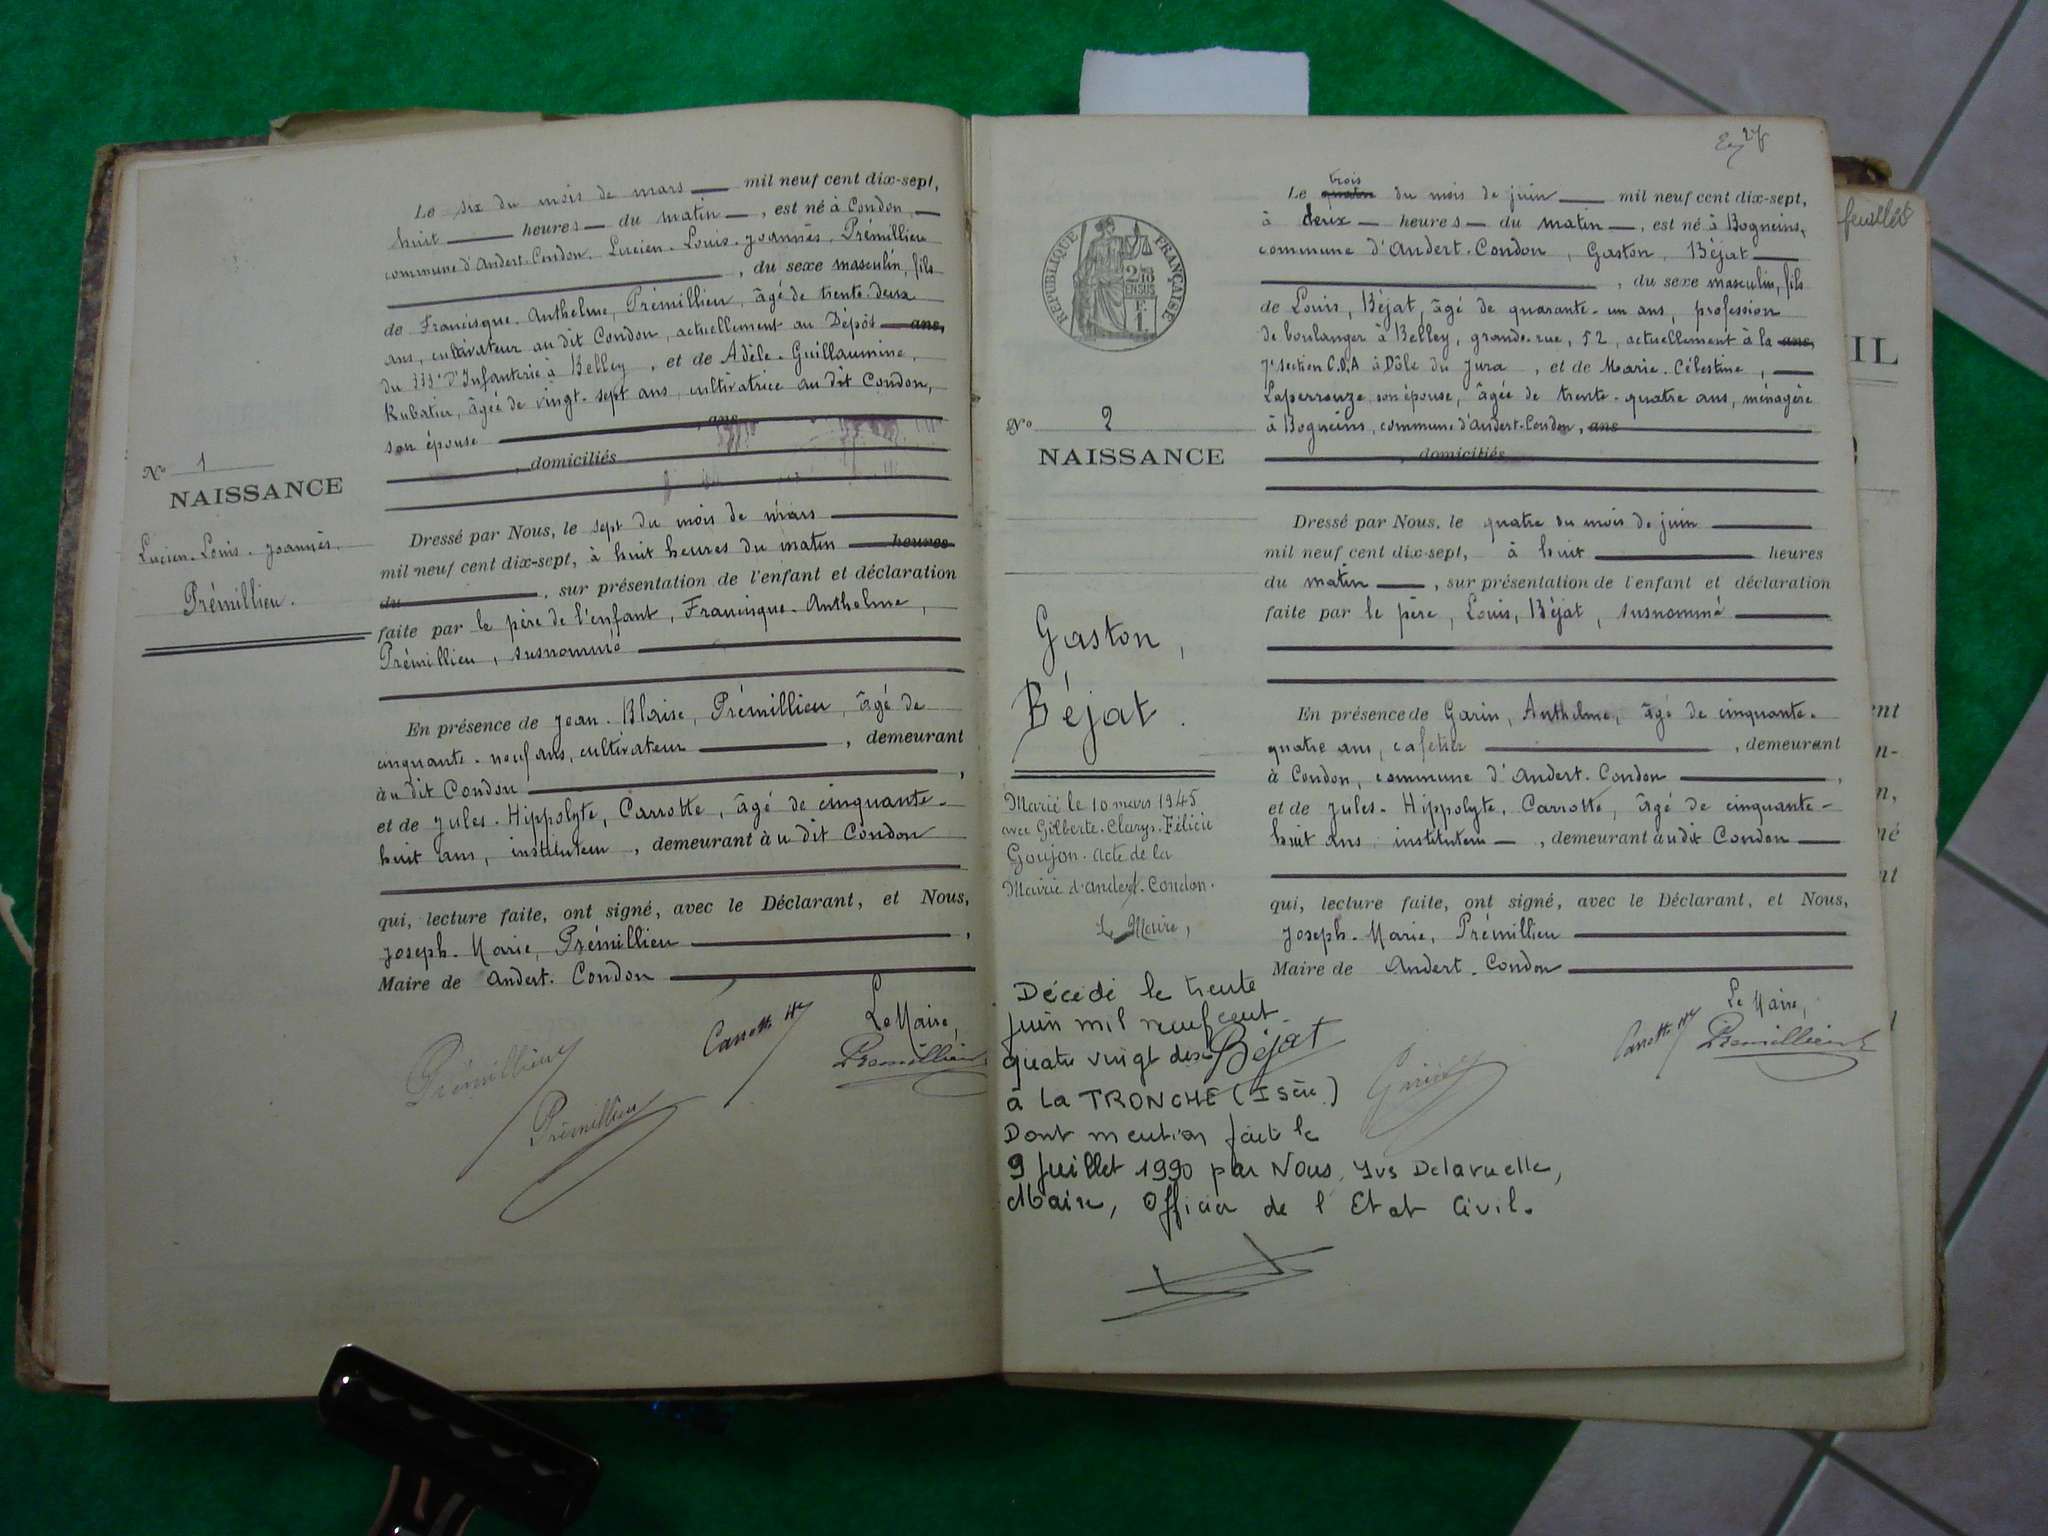 Le six du mois de mars mil neuf cent dix-sept,
huit heures du matin, est né à Condon
commune d'Andert-Condon. Lucien-Louis-Joannès. Prémillieu
, du sexe masculin, fils
de Francisque-Anthelme, Prémillieu, âgé de trente-deux
ans, cultivateur au dit Condon, actuellement au Dépôt ans,
du 133e d'Infanterie à Belley, et de Adèle-Guillaumine,
Rubatier, âgée de vingt-sept ans, cultivatrice au dit Condon,
son épouse ans
, domiciliés
No 1
NAISSANCE
Lucien-Louis-Joannès.
Prémillieu.
Dressé par Nous, le sept du mois de mars
mil neuf cent dix-sept, à huit heures du matin heures
du , sur présentation de l'enfant et déclaration
faite par le père de l'enfant, Francisque-Anthelme,
Prémillieu, susnommé
En présence de Jean-Blaise, Prémillieu, âgé de
cinquante-neuf ans, cultivateur , demeurant
à u dit Condon ,
et de Jules-Hippolyte, Carrotte, âgé de cinquante-
huit ans, instituteur , demeurant à u dit Condon
qui, lecture faite, ont signé, avec le Déclarant, et Nous,
Joseph-Marie, Prémillieu ,
Maire de Andert-Condon
Le Maire,
Prémillieu Carrotte Prémillieu
Prémillieu
27
RÉPUBLIQUE FRANÇAISE
2/10 EN SUS
1 F
trois
Le quatre du mois de juin mil neuf cent dix-sept,
à deux heures du matin, est né à Bogneins,
commune d'Andert-Condon, Gaston, Béjat
, du sexe masculin, fils
de Louis, Béjat, âgé de quarante-un ans, profession
de boulanger à Belley, grande-rue, 52, actuellement à la ans,
7e section C.O.A à Dôle du Jura, et de Marie-Célestine,
Laperrouze son épouse, âgée de trente-quatre ans, ménagère
à Bogneins, commune d'Andert-Condon, ans
, domiciliés
No 2
NAISSANCE
Gaston,
Béjat.
Dressé par Nous, le quatre du mois de juin
mil neuf cent dix-sept, à huit heures
du matin , sur présentation de l'enfant et déclaration
faite par le père, Louis, Béjat, susnommé
En présence de Garin, Anthelme, âgé de cinquante-
quatre ans, cafetier , demeurant
à Condon, commune d'Andert-Condon ,
et de Jules-Hippolyte, Carrotte, âgé de cinquante-
huit ans, instituteur , demeurant à u dit Condon
qui, lecture faite, ont signé, avec le Déclarant, et Nous,
Joseph-Marie, Prémillieu
Maire de Andert-Condon
Le Maire,
Béjat Garin Carrotte Prémillieu
Marié le 10 mars 1945
avec Gilberte-Clarys-Félicie
Goujon. Acte de la
Mairie d'Andert-Condon.
Le Maire,
Décédé le trente
juin mil neuf cent
quatre vingt dix
à LA TRONCHE (Isère)
Dont mention faite le
9 juillet 1990 par Nous, Yvs Delaruelle,
Maire, Officier de l'Etat Civil.
feuillets
IL